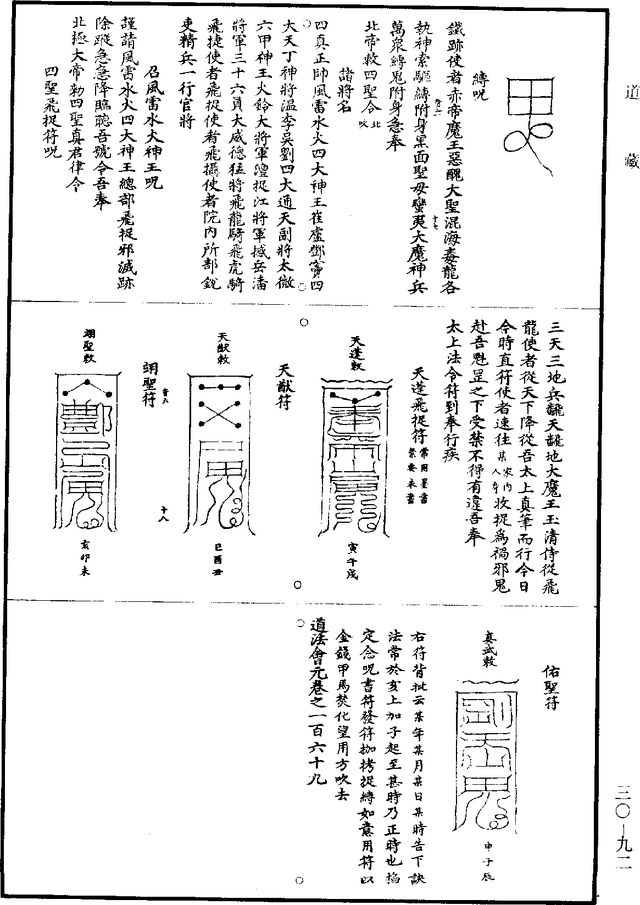 道藏
縛呪
鐵跡使者赤帝魔王惡醜大聖混海毒龍各
執神索驅縛附身黑面聖母蠻夷大魔神兵
萬眾縛鬼附身急奉
北帝敕四聖令北吹
諸將名
四真正帥風雷水火四大神王崔盧鄧竇四
大天丁神將溫李吳劉四大通天副將太微
六甲神王火鈴大將軍澄捉江將軍撼岳潘
將軍三十六員大威德猛將飛龍騎飛虎騎
飛捷使者飛捉使者飛攝使者院內所部銳
吏精兵一行官將
召風雷水火神王呪
謹請風雷水火四大神王總部飛捉邪滅跡
除蹤急急降臨聽吾號令吾奉
北極大帝勑四聖真君律令
四聖飛捉符呪
三天三地兵龍天龍地大魔王玉清侍從飛
龍使者從天下降從吾太上真筆而行今日
今時直符使者速往某人家內身收捉為禍邪鬼
赴吾魁罡之下受禁不得有違吾奉
太上法令符到奉行疾
天蓬飛捉符常用墨書禁要朱書
天蓬敕
寅午戌
天猷符
天猷敕
巳酉丑
翊聖符
十八
翊聖敕
亥卯未
佑聖符
真武敕
申子辰
右符背批云某年某月某日某時告下訣
法常於亥上加子起至甚時乃正時也掐
定念呪書符發符枷拷捉縛如意用符以
金錢甲馬焚化望用方吹去
道法會元卷之一百六十九
三〇—九二